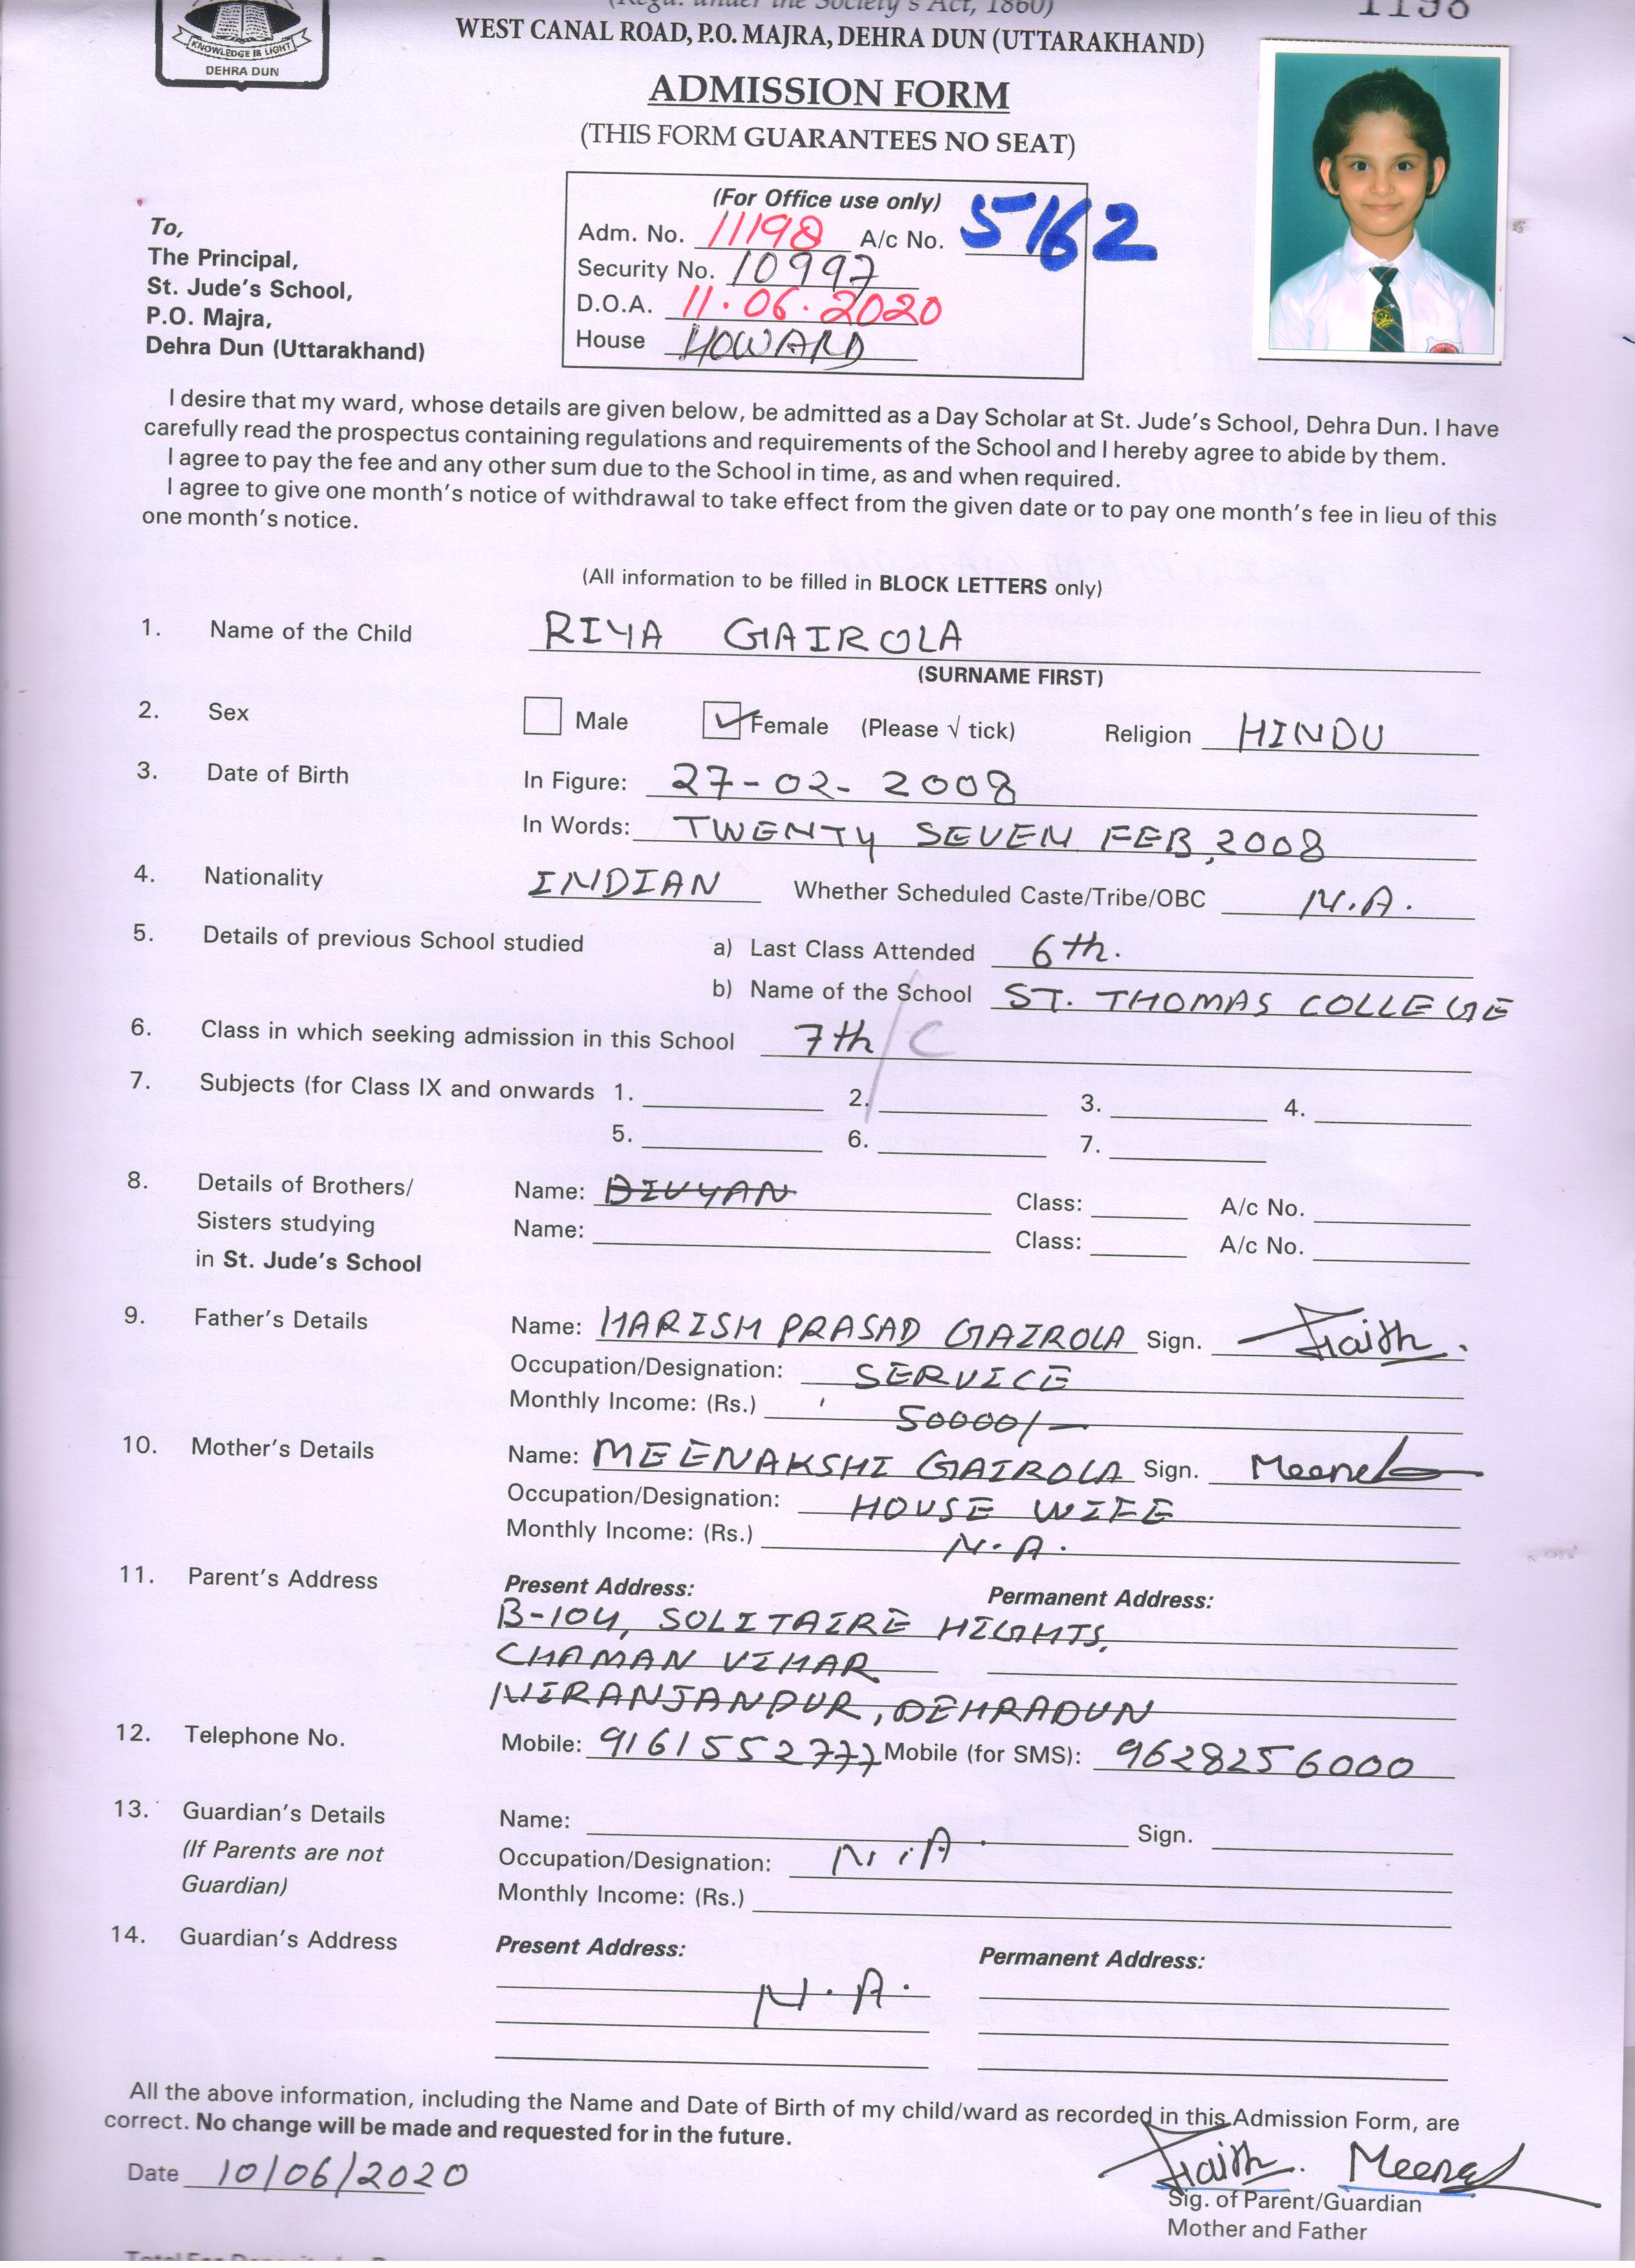 (Regd. under the Society's Act, 1860)
1198
WEST CANAL ROAD, P.O. MAJRA, DEHRA DUN (UTTARAKHAND)
KNOWLEDGE IS LIGHT
DEHRA DUN
ADMISSION FORM
(THIS FORM GUARANTEES NO SEAT)
(For Office use only)
Adm. No. 11198 A/c No. 5162
Security No. 10997
D.O.A. 11.06.2020
House HOWARD
To,
The Principal,
St. Jude's School,
P.O. Majra,
Dehra Dun (Uttarakhand)
I desire that my ward, whose details are given below, be admitted as a Day Scholar at St. Jude's School, Dehra Dun. I have
carefully read the prospectus containing regulations and requirements of the School and I hereby agree to abide by them.
I agree to pay the fee and any other sum due to the School in time, as and when required.
I agree to give one month's notice of withdrawal to take effect from the given date or to pay one month's fee in lieu of this
one month's notice.
(All information to be filled in BLOCK LETTERS only)
1. Name of the Child RIYA GAIROLA
(SURNAME FIRST)
2. Sex Male ✓ Female (Please √ tick) Religion HINDU
3. Date of Birth In Figure: 27-02-2008
In Words: TWENTY SEVEN FEB, 2008
4. Nationality INDIAN Whether Scheduled Caste/Tribe/OBC N.A.
5. Details of previous School studied a) Last Class Attended 6th.
b) Name of the School ST. THOMAS COLLEGE
6. Class in which seeking admission in this School 7th/C
7. Subjects (for Class IX and onwards 1. 2. 3. 4.
5. 6. 7.
8. Details of Brothers/ Name: DIVYAN Class: A/c No.
Sisters studying Name: Class: A/c No.
in St. Jude's School
9. Father's Details Name: HARISH PRASAD GAIROLA Sign.
Occupation/Designation: SERVICE
Monthly Income: (Rs.) 50000/-
10. Mother's Details Name: MEENAKSHI GAIROLA Sign.
Occupation/Designation: HOUSE WIFE
Monthly Income: (Rs.) N.A.
11. Parent's Address Present Address: Permanent Address:
B-104, SOLITAIRE HIGHTS,
CHAMAN VIHAR
NIRANJANPUR, DEHRADUN
12. Telephone No. Mobile: 9161552777 Mobile (for SMS): 9628256000
13. Guardian's Details Name: Sign.
(If Parents are not Occupation/Designation: N.A.
Guardian) Monthly Income: (Rs.)
14. Guardian's Address Present Address: Permanent Address:
N.A.
All the above information, including the Name and Date of Birth of my child/ward as recorded in this Admission Form, are
correct. No change will be made and requested for in the future.
Date 10/06/2020
Sig. of Parent/Guardian
Mother and Father